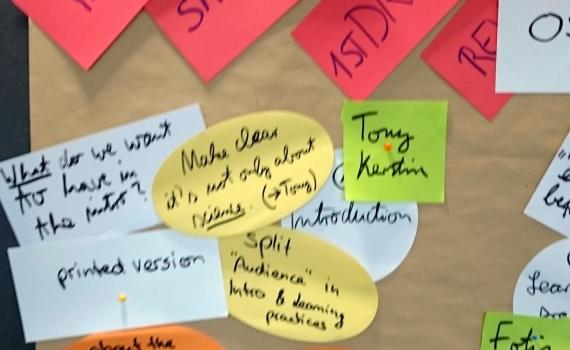 1ST DR
RE
What do we want
to have in
the intro?
Make clear
it's not only about
science. (→Tony)
Tony
Kerstin
Introduction
printed version
Split
"Audience" in
Intro & learning
practices
about the